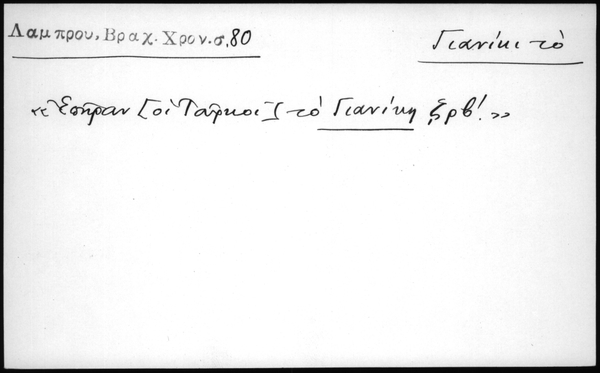 Λαμπρου, Βραχ. Χρον. σ. 80
Γιανίκι τὸ
«Ἐπῆραν [οἱ Τοῦρκοι] τὸ Γιανίκη ͵ϛρβ΄.»